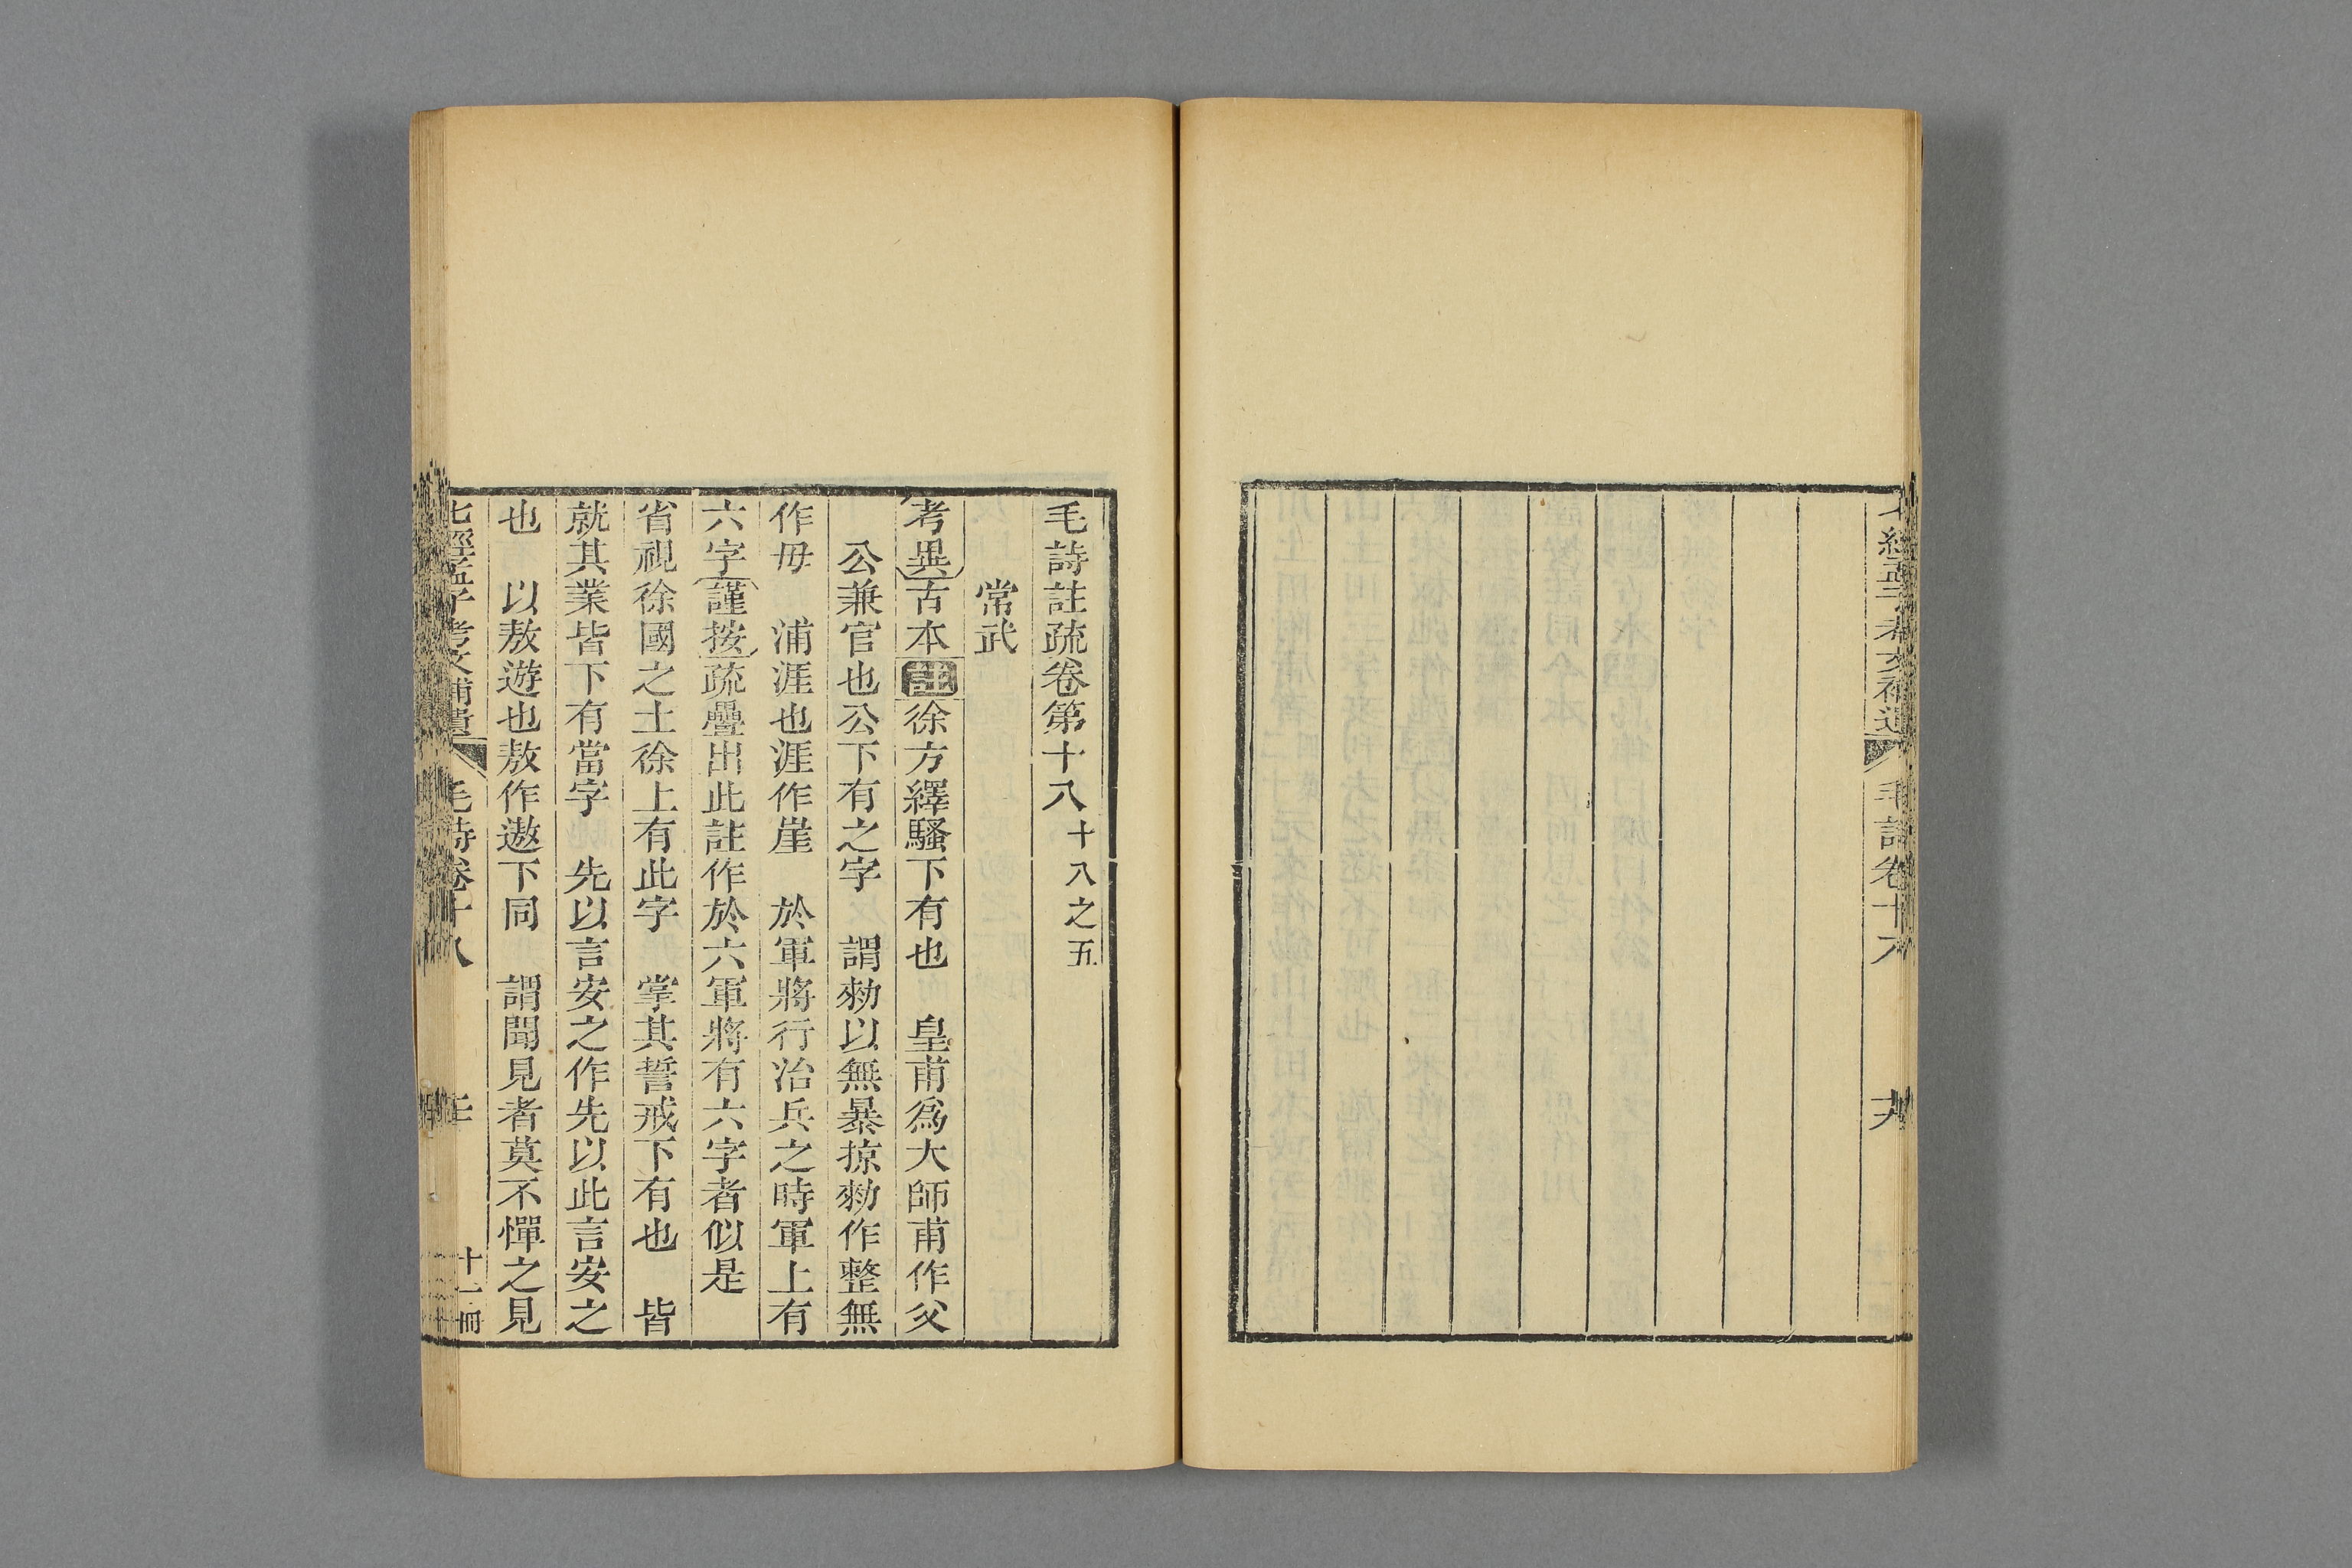 七經孟子考文補遺 毛詩卷十八
毛詩註疏卷第十八 十八之五
常武
考異 古本 註 徐方繹騷下有也 皇甫爲大師甫作父
公兼官也公下有之字 謂勑以無暴掠勑作整無
作毋 浦涯也涯作崖 於軍將行治兵之時軍上有
六字 謹按 疏疊出此註作於六軍將有六字者似是
省視徐國之土徐上有此字 掌其誓戒下有也 皆
就其業皆下有當字 先以言安之作先以此言安之
也 以敖遊也敖作遨下同 謂聞見者莫不憚之見
七經孟子考文補遺 毛詩卷十八 十一冊